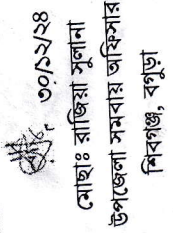 ৩০/১২/২৪
মোছাঃ রাজিয়া সুলতানা
উপজেলা সমবায় অফিসার
শিবগঞ্জ, বগুড়া